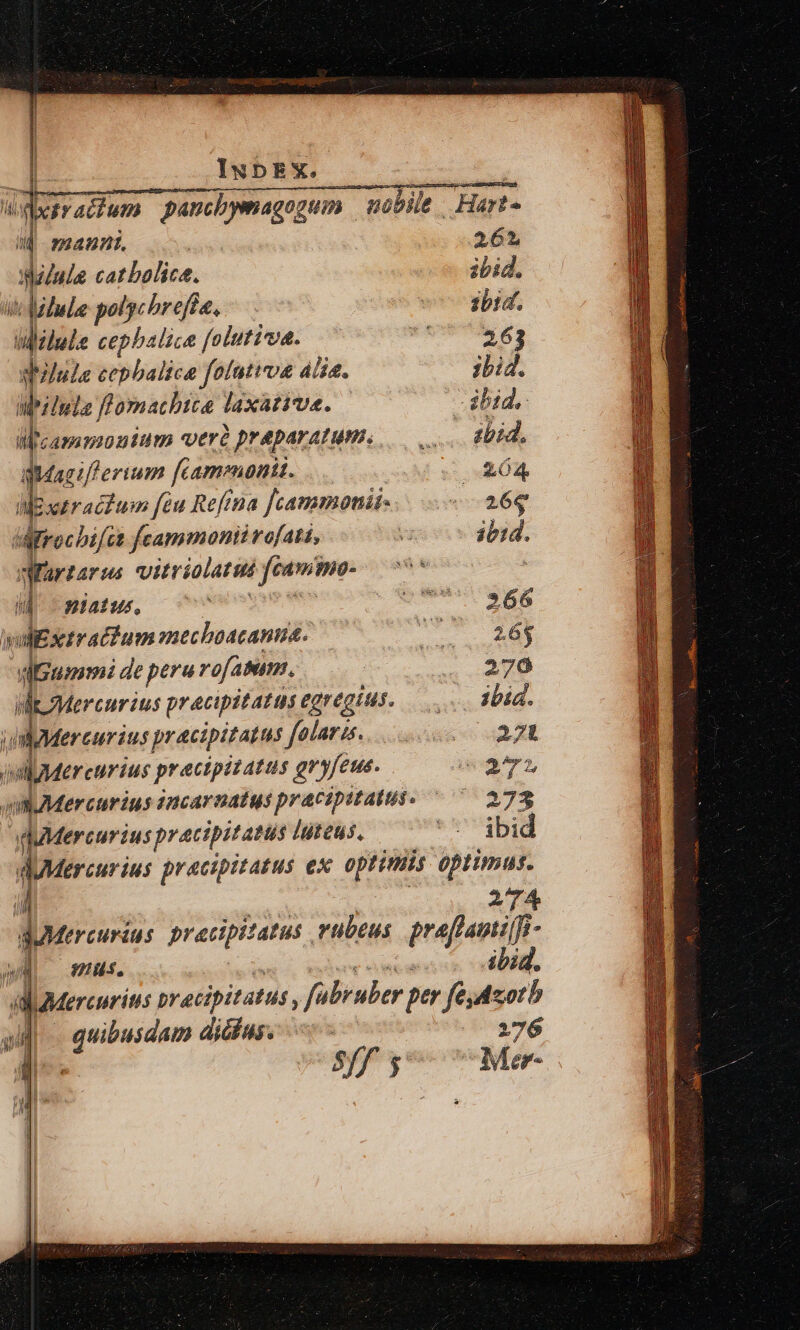 INDEX.
Extractum panchymagogum nobile Hart-
manni. 262
Pilulæ catholicæ. ibid.
Pilulæ polychreſtæ. ibid.
Pilulæ cephalicæ ſolutivæ. 263
Pilulæ cephalicæ ſolutivæ aliæ. ibid.
Pilulæ ſtomachicæ laxativæ. ibid.
Scammonium verè præparatum. ibid.
Magiſterium ſcammonii. 264
Extractum ſeu Reſina ſcammonii. 265
Trochiſci ſcammonii roſati, ibid.
Tartarus vitriolatus ſcammo-
niatus, 266
Extractum mechoacannæ. 265
Gummi de peru roſatum. 270
Mercurius præcipitatus egregius. ibid.
Mercurius præcipitatus ſolaris. 271
Mercurius præcipitatus gryſeus. 272
Mercurius incarnatus præcipitatus. 273
Mercurius præcipitatus luteus. ibid
Mercurius præcipitatus ex optimis optimus.
274
Mercurius præcipitatus rubeus præſtantiſſi-
mus. ibid.
Mercurius præcipitatus, ſubruber per ſe, Azoth
quibusdam dictus. 276
Sſſ 5 Mer-